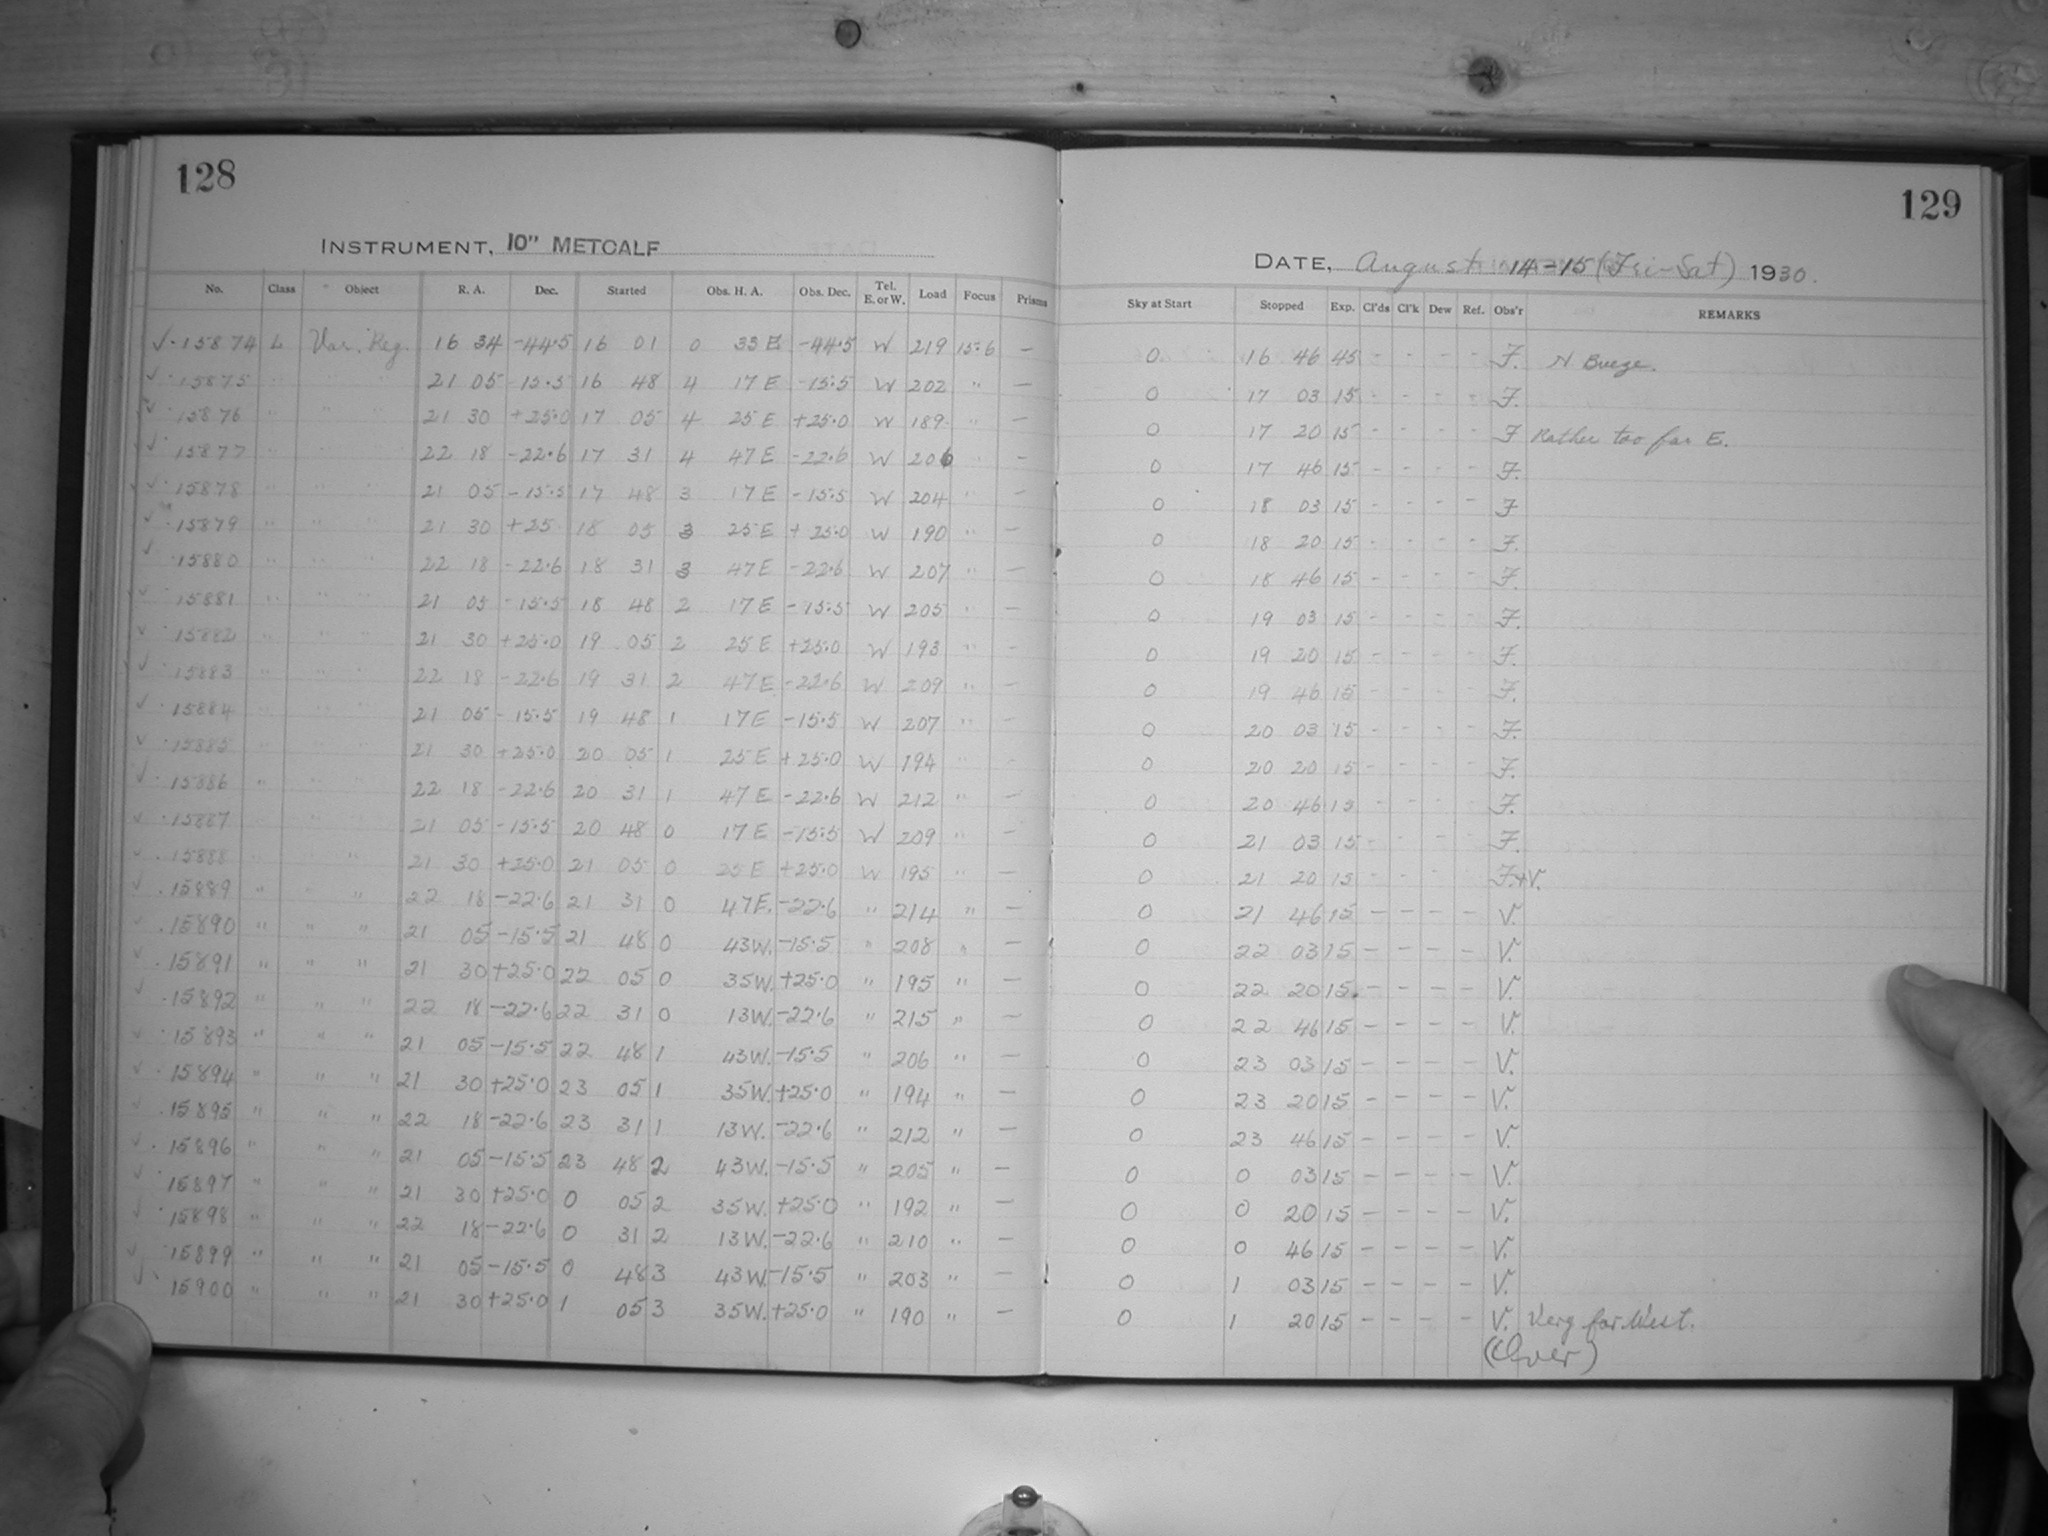 128
INSTRUMENT, 10" METCALF
No. Class Object R. A. Dec. Started Obs. H. A. Obs. Dec. Tel. E. or W. Load Focus Prisms
15874 L Var. Reg. 16 34 -44.5 16 01 0 33 E -44.5 W 219 15.6 —
15875 " " " 21 05 -15.5 16 48 4 17 E -15.5 W 202 " —
15876 " " " 21 30 +25.0 17 05 4 25 E +25.0 W 189 " —
15877 " " " 22 18 -22.6 17 31 4 47 E -22.6 W 206 " —
15878 " " " 21 05 -15.5 17 48 3 17 E -15.5 W 204 " —
15879 " " " 21 30 +25 18 05 3 25 E +25.0 W 190 " —
15880 " " " 22 18 -22.6 18 31 3 47 E -22.6 W 207 " —
15881 " " " 21 05 -15.5 18 48 2 17 E -15.5 W 205 " —
15882 " " " 21 30 +25.0 19 05 2 25 E +25.0 W 193 " —
15883 " " " 22 18 -22.6 19 31 2 47 E -22.6 W 209 " —
15884 " " " 21 05 -15.5 19 48 1 17 E -15.5 W 207 " —
15885 " " " 21 30 +25.0 20 05 1 25 E +25.0 W 194 " —
15886 " " " 22 18 -22.6 20 31 1 47 E -22.6 W 212 " —
15887 " " " 21 05 -15.5 20 48 0 17 E -15.5 W 209 " —
15888 " " " 21 30 +25.0 21 05 0 25 E +25.0 W 195 " —
15889 " " " 22 18 -22.6 21 31 0 47 E. -22.6 " 214 " —
15890 " " " 21 05 -15.5 21 48 0 43 W. -15.5 " 208 " —
15891 " " " 21 30 +25.0 22 05 0 35 W. +25.0 " 195 " —
15892 " " " 22 18 -22.6 22 31 0 13 W. -22.6 " 215 " —
15893 " " " 21 05 -15.5 22 48 1 43 W. -15.5 " 206 " —
15894 " " " 21 30 +25.0 23 05 1 35 W. +25.0 " 194 " —
15895 " " " 22 18 -22.6 23 31 1 13 W. -22.6 " 212 " —
15896 " " " 21 05 -15.5 23 48 2 43 W. -15.5 " 205 " —
15897 " " " 21 30 +25.0 0 05 2 35 W. +25.0 " 192 " —
15898 " " " 22 18 -22.6 0 31 2 13 W. -22.6 " 210 " —
15899 " " " 21 05 -15.5 0 48 3 43 W. -15.5 " 203 " —
15900 " " " 21 30 +25.0 1 05 3 35 W. +25.0 " 190 " —
129
DATE, August 14-15 (Fri-Sat) 1930.
Sky at Start Stopped Exp. Cl'ds Cl'k Dew Ref. Obs'r REMARKS
0 16 46 45 - - - - F. N Breeze.
0 17 03 15 - - - - F.
0 17 20 15 - - - - F Rather too far E.
0 17 46 15 - - - - F.
0 18 03 15 - - - - F
0 18 20 15 - - - - F.
0 18 46 15 - - - - F.
0 19 03 15 - - - - F.
0 19 20 15 - - - - F.
0 19 46 15 - - - - F.
0 20 03 15 - - - - F.
0 20 20 15 - - - - F.
0 20 46 15 - - - - F.
0 21 03 15 - - - - F.
0 21 20 15 - - - - F.+V.
0 21 46 15 - - - - V.
0 22 03 15 - - - - V.
0 22 20 15. - - - - V.
0 22 46 15 - - - - V.
0 23 03 15 - - - - V.
0 23 20 15 - - - - V.
0 23 46 15 - - - - V.
0 0 03 15 - - - - V.
0 0 20 15 - - - - V.
0 0 46 15 - - - - V.
0 1 03 15 - - - - V.
0 1 20 15 - - - - V. Very far West.
(Over)